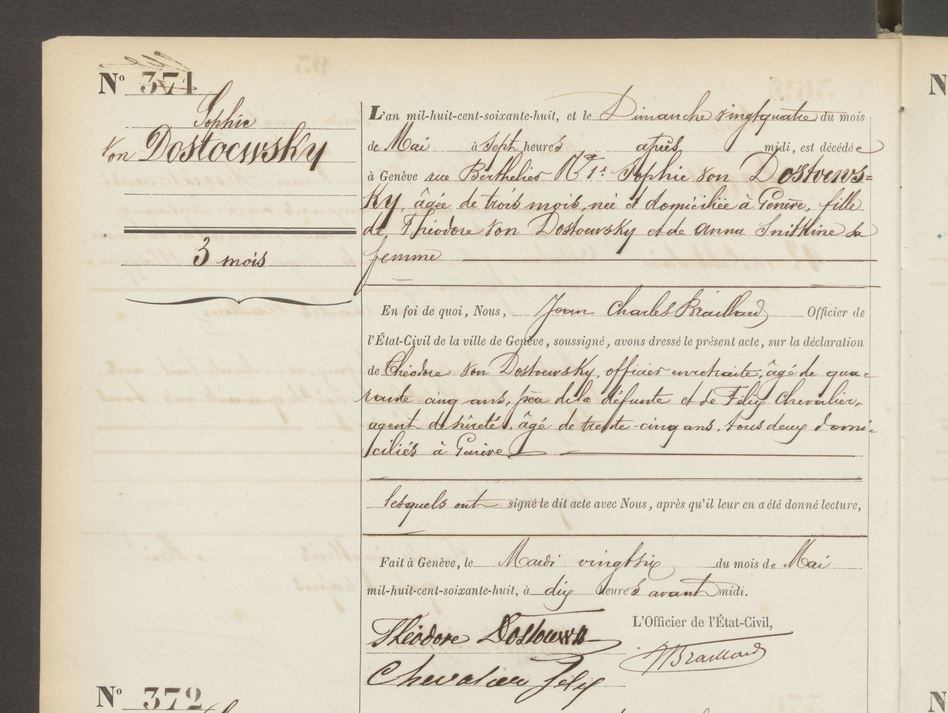 N° 371
Sophie
von Dostoewsky
3 mois
L'an mil-huit-cent-soixante-huit, et le Dimanche vingtquatre du mois
de Mai à Sept heures après midi, est décédée
à Genève rue Berthelier N° 1: Sophie von Dostoews=
ky, âgée de trois mois, née et domiciliée à Genève, fille
de Théodore von Dostoewsky et de Anna Snitkine sa
femme
En foi de quoi, Nous, Jean Charles Braillard Officier de
l'État-Civil de la ville de Genève, soussigné, avons dressé le présent acte, sur la déclaration
de Théodore von Dostoewsky, officier en retraite, âgé de qua-
rante cinq ans, père de la défunte et de Félix Chevalier,
agent de sûreté, âgé de trente-cinq ans, tous deux domi-
ciliés à Genève
lesquels ont signé le dit acte avec Nous, après qu'il leur en a été donné lecture,
Fait à Genève, le Mardi vingtsix du mois de Mai
mil-huit-cent-soixante-huit, à dix heures avant midi.
L'Officier de l'État-Civil,
Théodore
Braillard
Chevalier Félix
N° 372